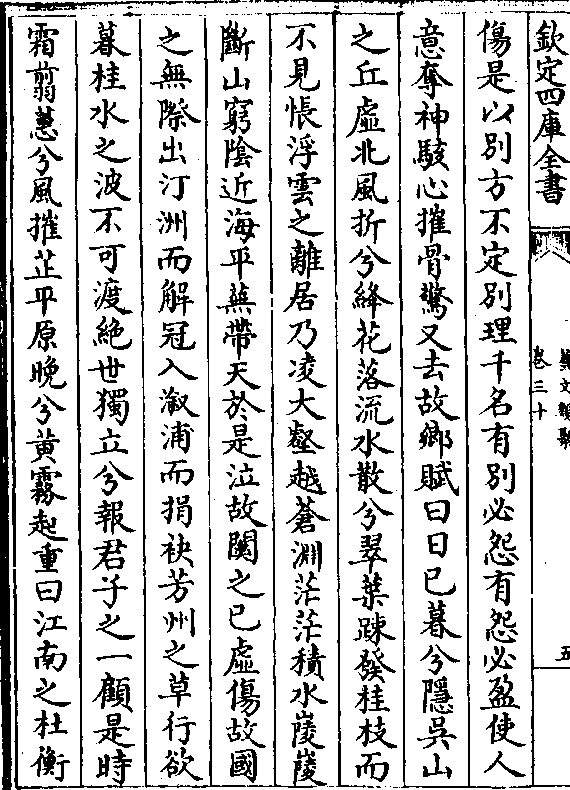 欽定四庫全書
藝文類聚
卷三十
五
傷是以別方不定別理千名有別必怨有怨必盈使人
意奪神駭心摧骨驚又去故鄉賦曰日已暮兮隱吳山
之丘虛北風折兮絳花落流水散兮翠葉踈發桂枝而
不見悵浮雲之離居乃凌大壑越蒼淵茫茫積水崚崚
斷山窮陰近海平蕪帶天於是泣故關之已虛傷故國
之無際出汀洲而解冠入溆浦而捐袂芳州之草行欲
暮桂水之波不可渡絶世獨立兮報君子之一顧是時
霜翦蕙兮風摧芷平原晚兮黃霧起重曰江南之杜衡